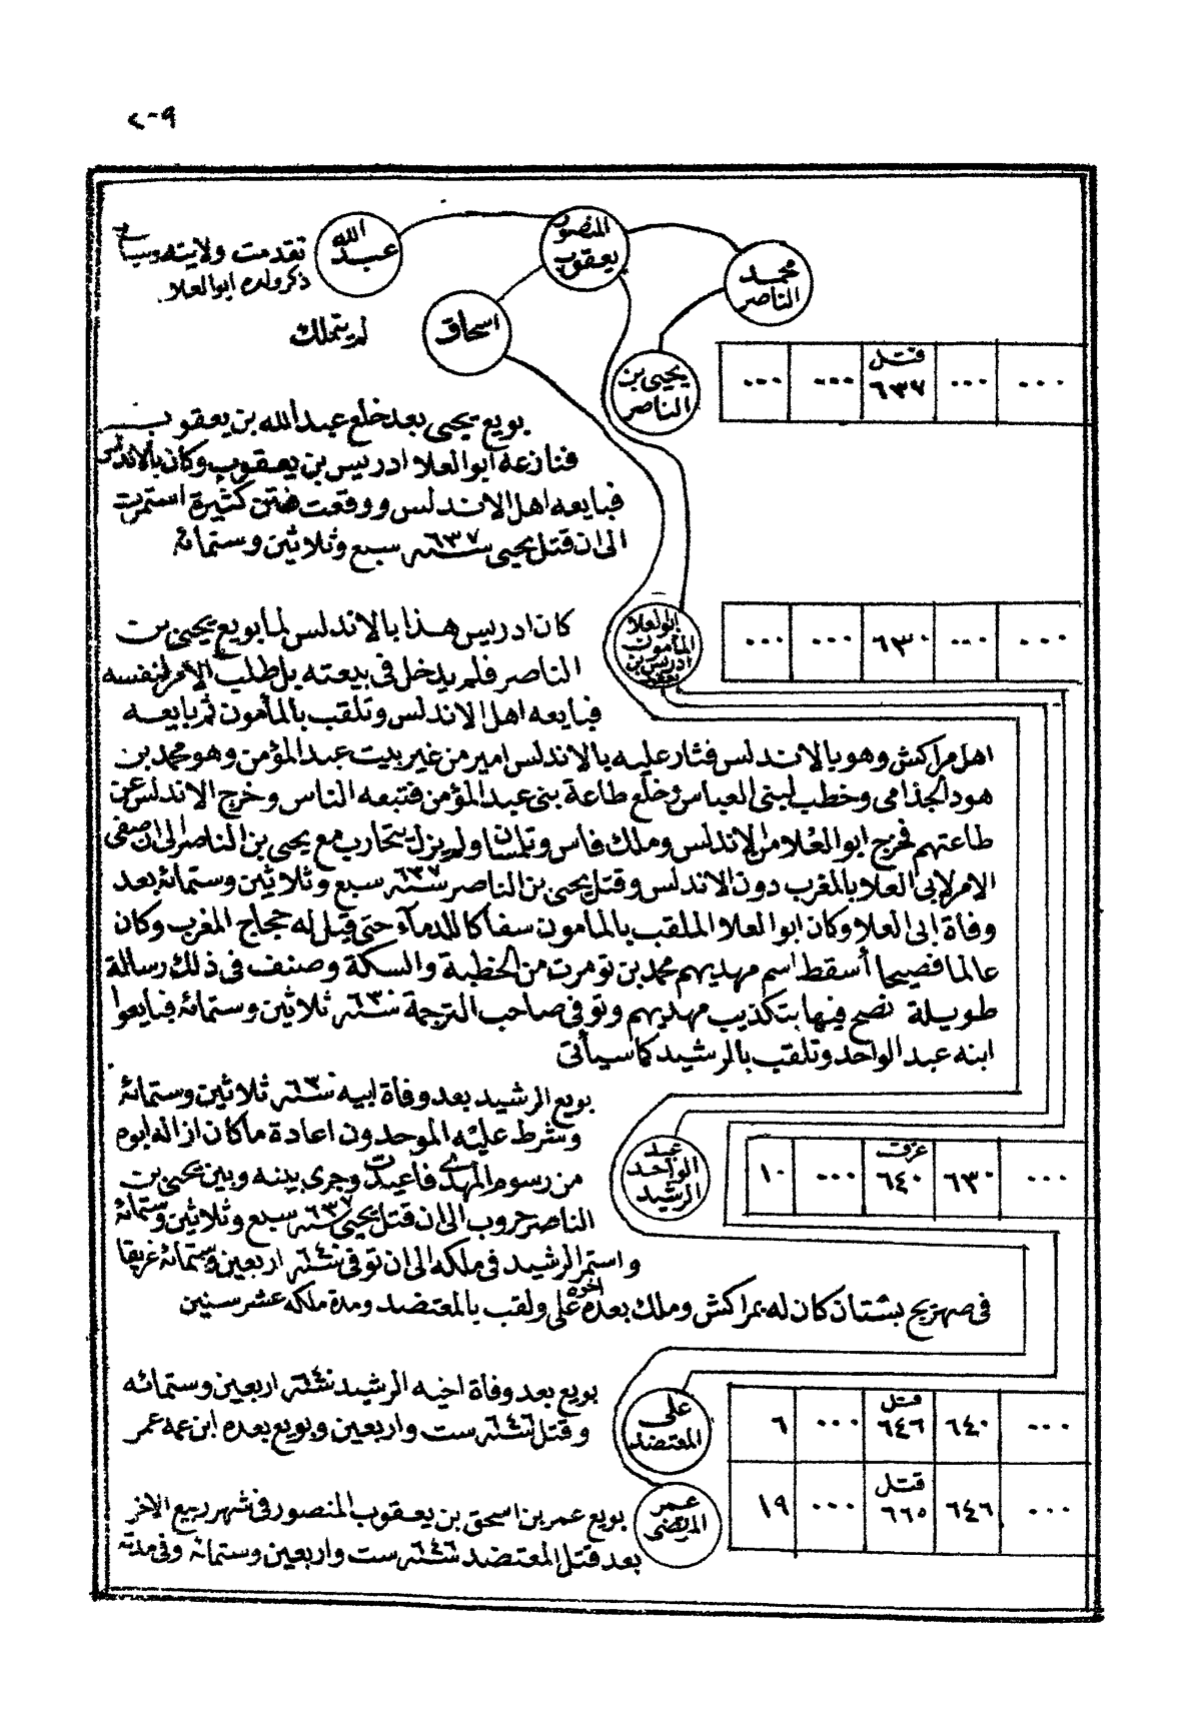 ٢٠٩
المنصور
يعقوب
عبد الله
تقدمت ولايته وسيأتي
ذكر ولده ابو العلا
محمد
الناصر
اسحاق
لم يتملك
يحيى بن
الناصر
... | ... | قتل ٦٣٧ | ... | ...
بويع يحيى بعد خلع عبد الله بن يعقوب
فنازعه ابو العلا ادريس بن يعقوب وكان بالاندلس
فبايعه اهل الاندلس ووقعت فتن كثيرة استمرت
الى ان قتل يحيى سنة ٦٣٧ سبع وثلاثين وستمائة
ابو العلا
المأمون
ادريس بن
يعقوب
... | ... | ٦٣٠ | ... | ...
كان ادريس هذا بالاندلس لما بويع يحيى بن
الناصر فلم يدخل في بيعته بل طلب الامر لنفسه
فبايعه اهل الاندلس وتلقب بالمأمون ثم بايعه
اهل مراكش وهو بالاندلس فثار عليه بالاندلس امير من غير بيت عبد المؤمن وهو محمد بن
هود الجذامى وخطب لبنى العباس وخلع طاعة بنى عبد المؤمن فتبعه الناس وخرج الاندلس عن
طاعتهم فخرج ابو العلا من الاندلس وملك فاس وتلمسان ولم يزل يتحارب مع يحيى بن الناصر الى ان صفى
الامر لابى العلا بالمغرب دون الاندلس وقتل يحيى بن الناصر سنة ٦٣٧ سبع وثلاثين وستمائة بعد
وفاة ابى العلا وكان ابو العلا الملقب بالمامون سفاكا للدمآء حتى قيل له حجاج المغرب وكان
عالما فصيحا أسقط اسم مهديهم محمد بن تومرت من الخطبة والسكة وصنف في ذلك رسالة
طويلة نصح فيها بتكذيب مهديهم وتوفى صاحب الترجمة سنة ٦٣٠ ثلاثين وستمائة فبايعوا
ابنه عبد الواحد وتلقب بالرشيد كما سيأتى
عبد
الواحد
الرشيد
... | ٦٣٠ | غرق ٦٤٠ | ... | ١٠
بويع الرشيد بعد وفاة ابيه سنة ٦٣٠ ثلاثين وستمائة
وشرط عليه الموحدون اعادة ما كان ازاله ابوه
من رسوم المهدى فاعيدت وجرى بينه وبين يحيى بن
الناصر حروب الى ان قتل يحيى سنة ٦٣٧ سبع وثلاثين وستمائة
واستمر الرشيد في ملكه الى ان توفى سنة ٦٤٠ اربعين وستمائة غريقا
في صهريج بستان كان له بمراكش وملك بعده اخوه على ولقب بالمعتضد ومدة ملكه عشر سنين
على
المعتضد
... | ٦٤٠ | قتل ٦٤٦ | ... | ٦
بويع بعد وفاة اخيه الرشيد سنة ٦٤٠ اربعين وستمائه
وقتل سنة ٦٤٦ ست واربعين وبويع بعده ابن عمه عمر
عمر
المرتضى
... | ٦٤٦ | قتل ٦٦٥ | ... | ١٩
بويع عمر بن اسحق بن يعقوب المنصور في شهر ربيع الاخر
بعد قتل المعتضد سنة ٦٤٦ ست واربعين وستمائه وفى مدته